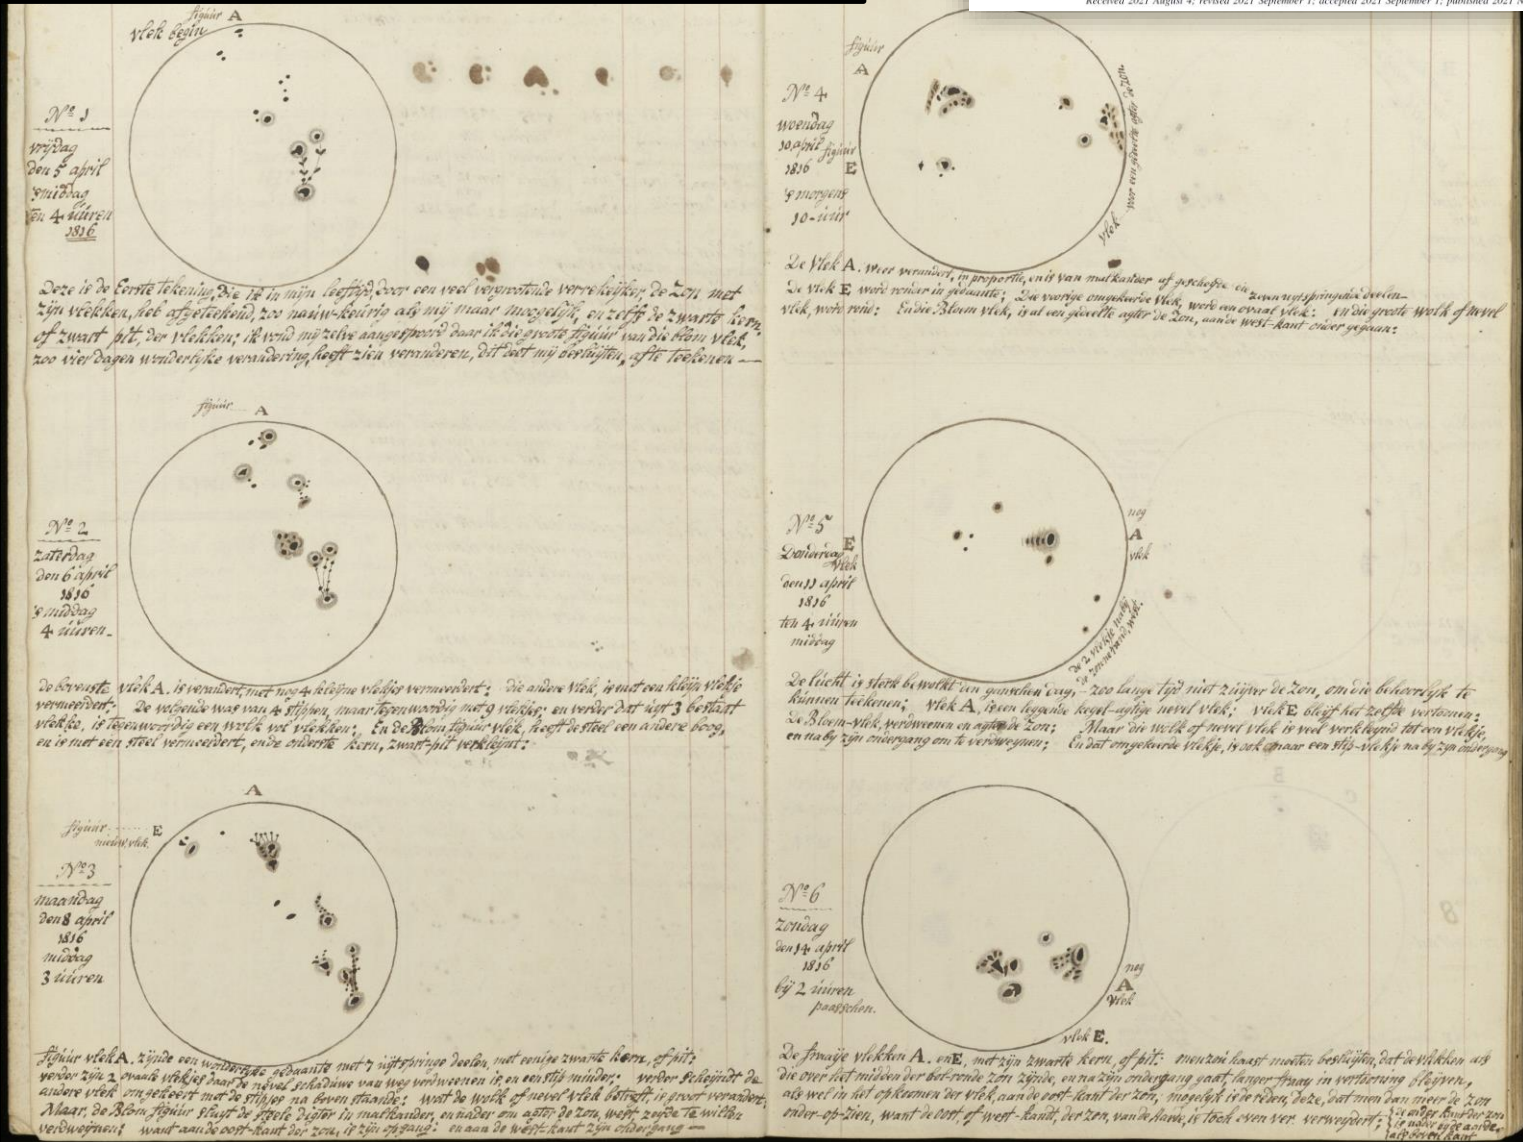 Received 2021 August 4; revised 2021 September 1; accepted 2021 September 1; published 2021 N
figúúr A
vlek begin
Nº 1
vrijdag
den 5 april
'smiddag
ten 4 úúren
1816
Deze is de Eerste tekening, die ik in mijn leeftijd, door een veel vergrootende verrekijker, de zon met
zijn vlekken, heb afgeteekend, zoo naúw-keúrig als mij maar mogelijk, en zelfs de zwarte kern,
of zwart pit, der vlekken; ik vond mij zelve aangespoord daar ik die groote figúúr van die blom vlek,
zoo vier dagen wonderlijke verandering, heeft zien veranderen, dit deet mij beslúijten, af te teekenen —
figúúr A
Nº 2
zaterdag
den 6 april
1816
's middag
4 úúren
de bovenste vlek A. is verandert, met nog 4 kleijne vlekjes vermeerdert; die andere vlek, is met een kleijn vlekje
vermeerdert; De volgende was van 4 stippen, maar tegenwoordig met 9 vlekjes; en verder dat úijt 3 bestaat
vlekke, is tegenwoordig een wolk vol vlekken; En de Blom figúúr vlek, heeft de steel een andere boog,
en is met een steel vermeerdert, en de onderste kern, zwart-pit verkleijnt:
A
figúúr E
nieúw, vlek.
Nº 3
maandag
den 8 april
1816
middag
3 úúren
figúúr vlek A. zijnde een wonderlijke gedaante met 7 úijtspringe deelen, met eenige zwarte kern, of pit;
verder zijn 2 ovaale vlekjes daar de nevel schadúwe van weg verdweenen is, en een stip minder; verder scheijndt de
andere vlek omgekeert met de stipjes na boven staande; wat de wolk of nevel vlek betreft, is groot verandert;
Maar, de Blom figúúr slúijt de steele digter in malkander, en nader om agter de zon, west zeijde te willen
verdweijnen; want aan de oost-kant der zon, is zijn opgang; en aan de west-kant zijn ondergang —
figúúr
A
Nº 4
woendag
10 april
1816
's morgens
10-úúr
figúúr
E
vlek voor een gedeelte agter de zon
De Vlek A. weer verandert, in proportie, en is van malkander af gescheijde en zeven úijtspringende deelen
De vlek E word ronder in gedaante; Die voorige omgekeerde vlek, werd een ovaal vlek; en die groote wolk of nevel
vlek, word rond; En die Bloem vlek, is al een gedeelte agter de zon, aan de west-kant onder gegaan:
Nº 5
Donderdag
den 11 april
1816
ten 4 úúren
middag
E
vlek
nog
A
vlek
de 2 vlekje nabij
de zonnerand, west.
De lúcht is sterk bewolkt den ganschen dag, zoo lange tijd niet zúijver de zon, om die behoorlijk te
kúnnen teekenen; vlek A, is een leggende kegel-agtige nevel vlek; vlek E blijft het zelfde vertoonen;
de Bloem-vlek verdweenen en agter de zon; Maar die wolk of nevel vlek is veel verkleijnd tot een vlekje,
en nabij zijn ondergang om te verdweijnen; En dat omgekeerde vlekje, is ook maar een stip-vlekje nabij zijn ondergang
Nº 6
zondag
den 14 april
1816
bij 2 úúren
paasschen.
nog
A
vlek
vlek E.
De fraaije vlekken A. en E, met zijn zwarte kern, of pit: men zoú haast moeten beslúijten, dat de vlekken als
die over het midden der bol-ronde zon zijnde, en na zijn ondergang gaat, langer fraaij in vertooning blijven,
als wel in het opkoomen der vlek, aan de oost-kant der zon, mogelijk is de reden, deze, dat men dan meer de zon
onder-op-zien, want de oost, of west-kandt, der zon, van de Aarde, is toch even ver verweijdert;